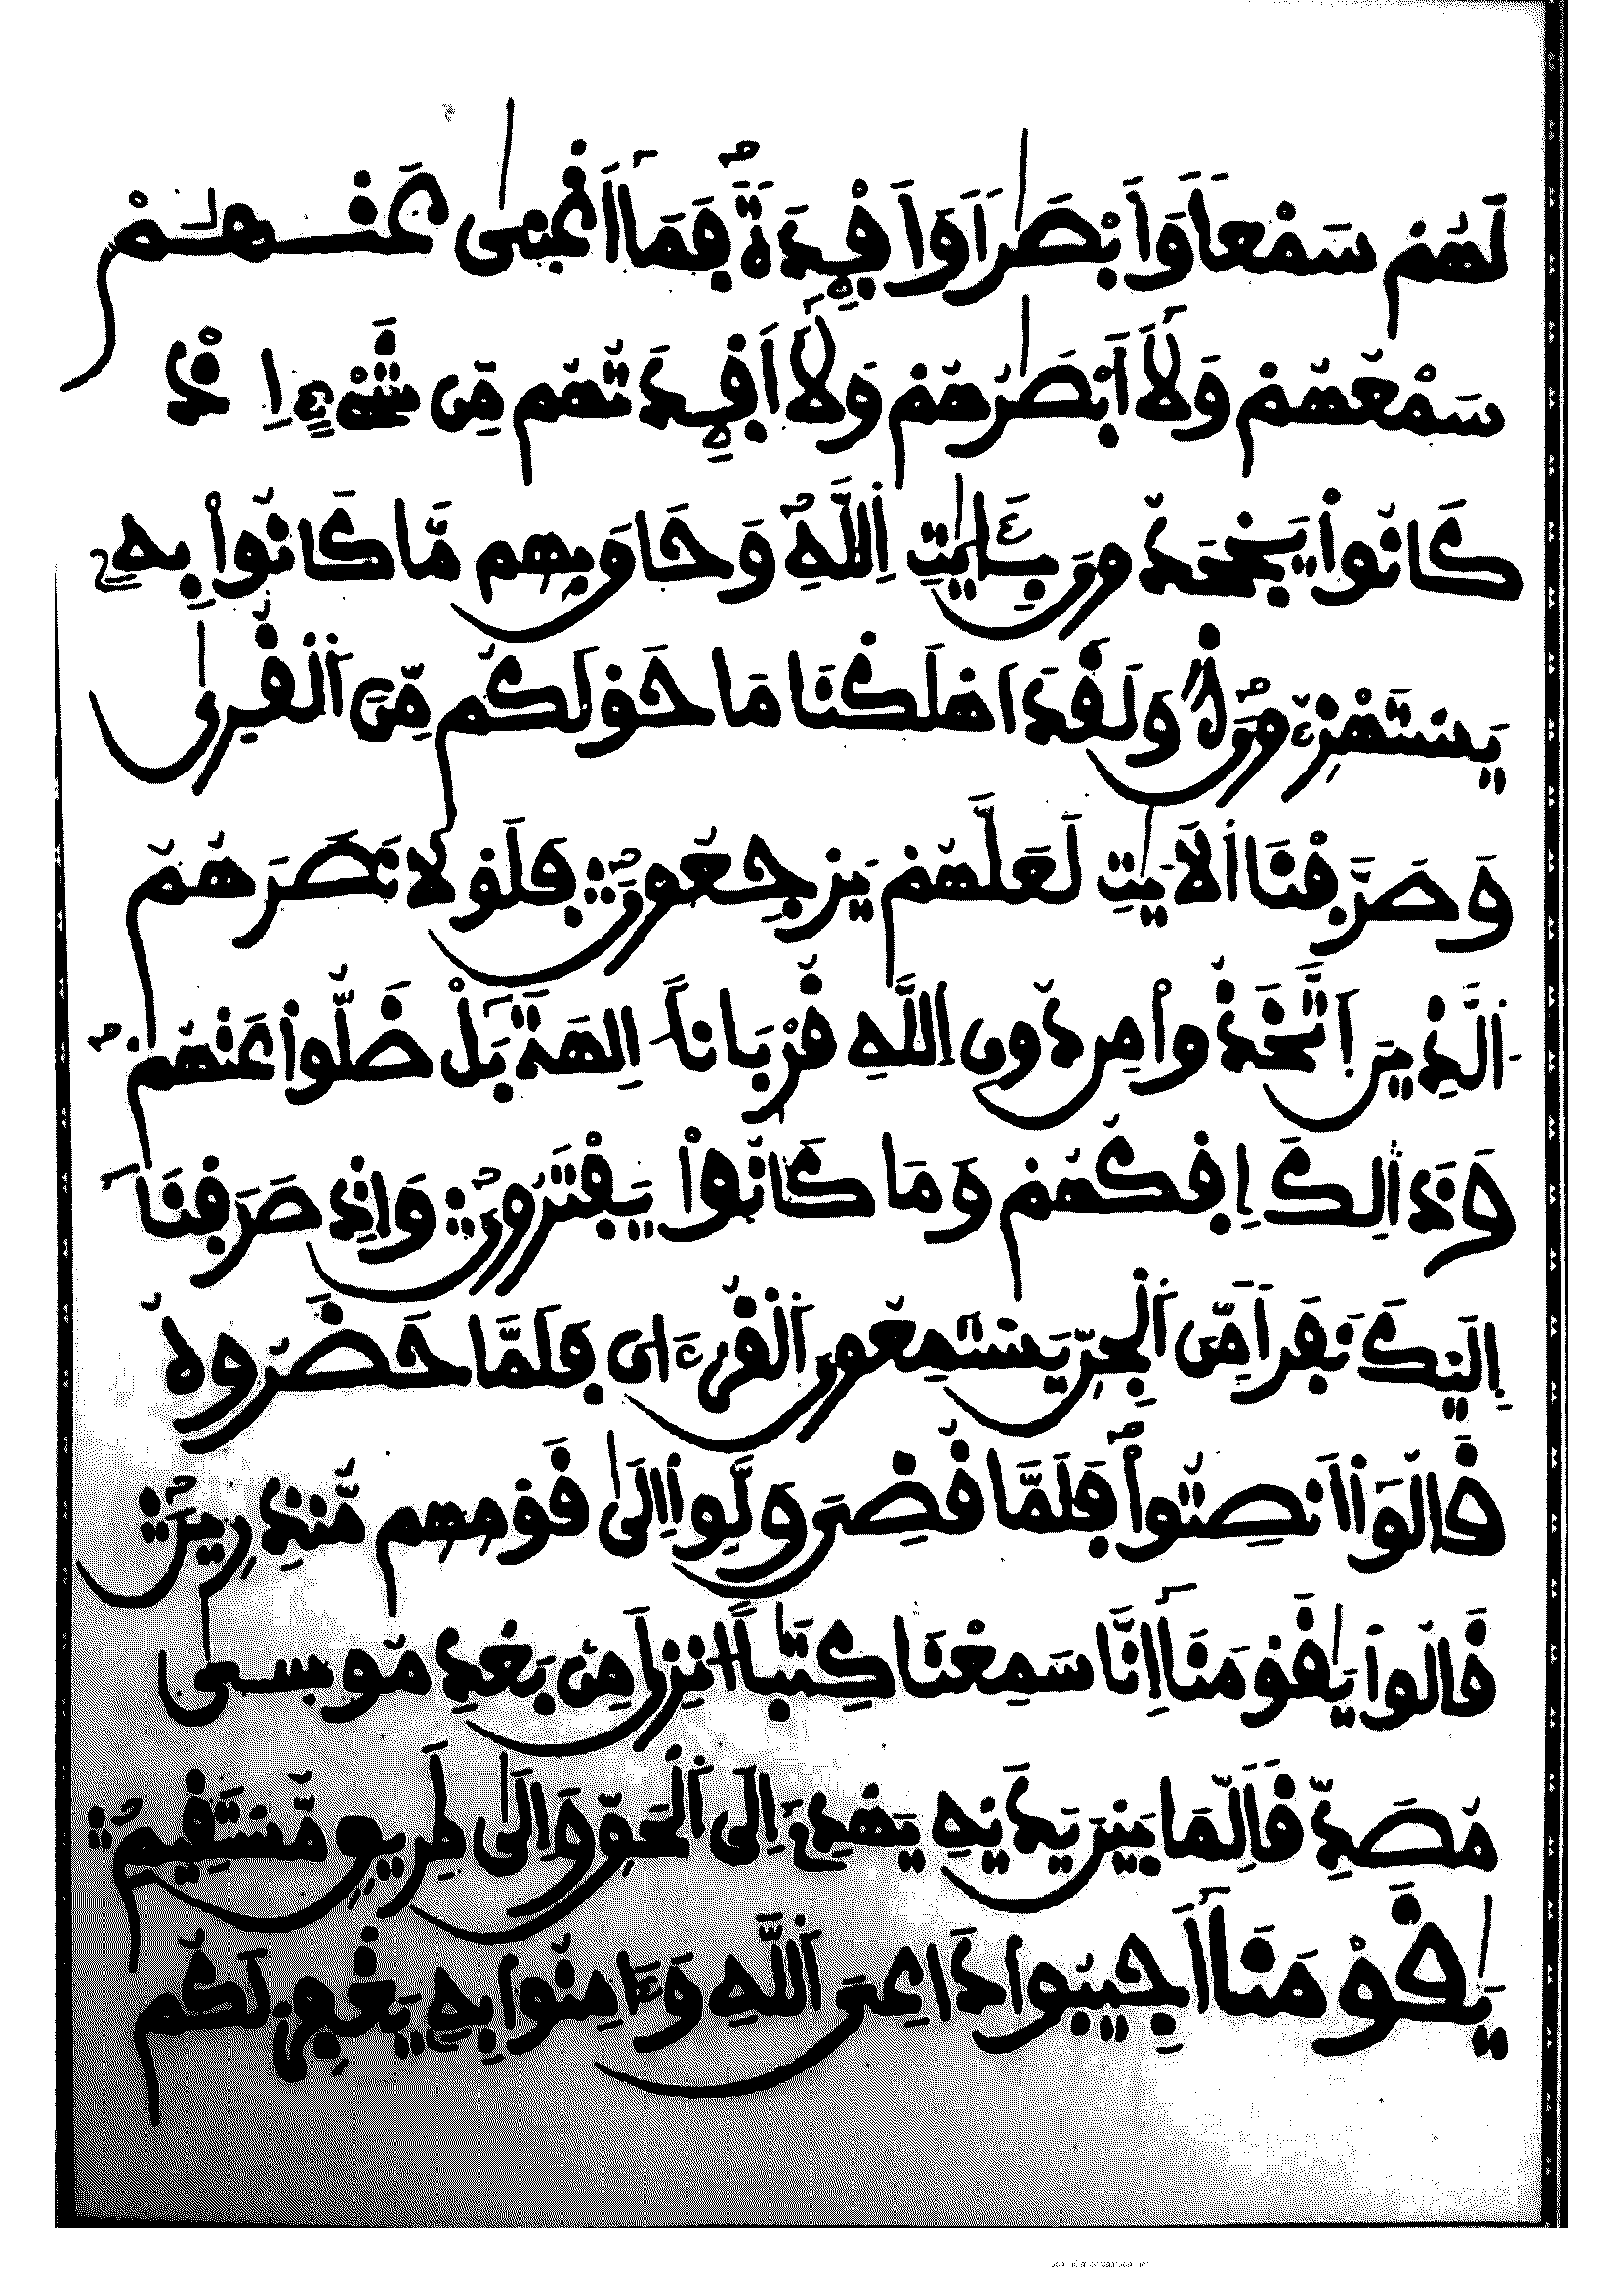 لَهُمْ سَمْعاً وَأَبْصَٰراً وَأَفْـِٕدَةً فَمَآ أَغْنَىٰ عَنْهُمْ
سَمْعُهُمْ وَلَآ أَبْصَٰرُهُمْ وَلَآ أَفْـِٕدَتُهُم مِّن شَيْءٍ إِذْ
كَانُوا۟ يَجْحَدُونَ بِـَٔايَٰتِ اِ۬للَّهِ وَحَاقَ بِهِم مَّا كَانُوا۟ بِهِۦ
يَسْتَهْزِءُونَ وَلَقَدَ اَهْلَكْنَا مَا حَوْلَكُم مِّنَ اَ۬لْقُرَىٰ
وَصَرَّفْنَا اَ۬لَايَٰتِ لَعَلَّهُمْ يَرْجِعُونَ فَلَوْلَا نَصَرَهُمُ
اُ۬لَّذِينَ اَ۪تَّخَذُوا۟ مِن دُونِ اِ۬للَّهِ قُرْبَاناً اٰلِهَةَۢ بَلْ ضَلُّوا۟ عَنْهُمْ
وَذَٰلِكَ إِفْكُهُمْ وَمَا كَانُوا۟ يَفْتَرُونَ وَإِذْ صَرَفْنَآ
إِلَيْكَ نَفَراً مِّنَ اَ۬لْجِنِّ يَسْتَمِعُونَ اَ۬لْقُرْءَانَ فَلَمَّا حَضَرُوهُ
قَالُوٓا۟ أَنصِتُوا۟ فَلَمَّا قُضِىَ وَلَّوِا۟ اِلَىٰ قَوْمِهِم مُّنذِرِينَ
قَالُوا۟ يَٰقَوْمَنَآ إِنَّا سَمِعْنَا كِتَٰباً ا۟نزِلَ مِنۢ بَعْدِ مُوسىٰ
مُصَدِّقاً لِّمَا بَيْنَ يَدَيْهِ يَهْدِىٓ إِلَى اَ۬لْحَقِّ وَإِلَىٰ طَرِيقٍ مُّسْتَقِيمٍ
يَٰقَوْمَنَآ أَجِيبُوا۟ دَاعِىَ اَ۬للَّهِ وَءَامِنُوا۟ بِهِۦ يَغْفِرْ لَكُم